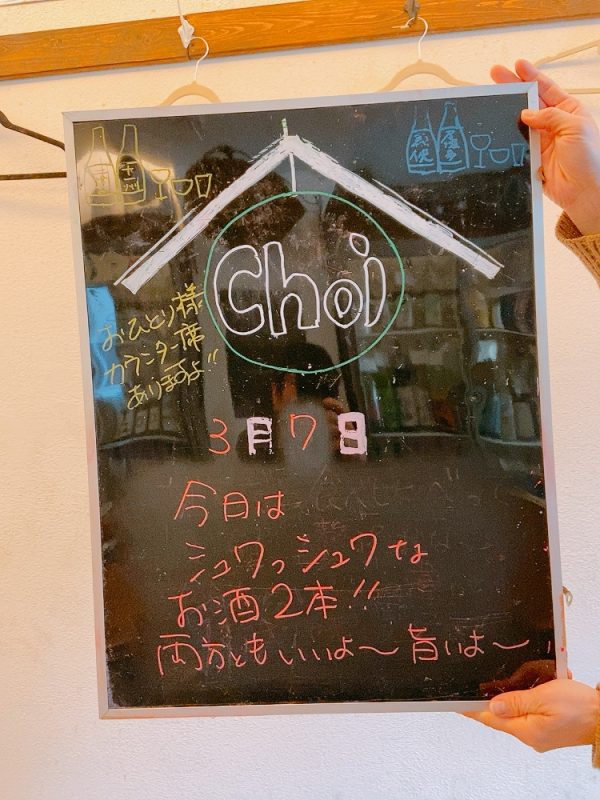 Choi
おひとり様
カウンター席
ありますよ!!
3月7日
今日は
シュワっシュワな
お酒2本!!
両方ともいいよ〜旨いよ〜